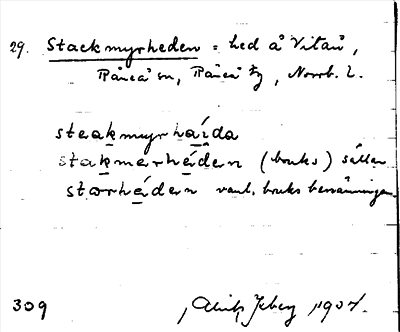 29. Stackmyrheden = hed å Vitåu,
Råneå sn, Råneå tg, Norrb. l.
steakmyrhaída
stakmȧrhéden (bruks) sällan
storhéden vanl. bruks benämningen.
309
Alrik Isberg 1907.